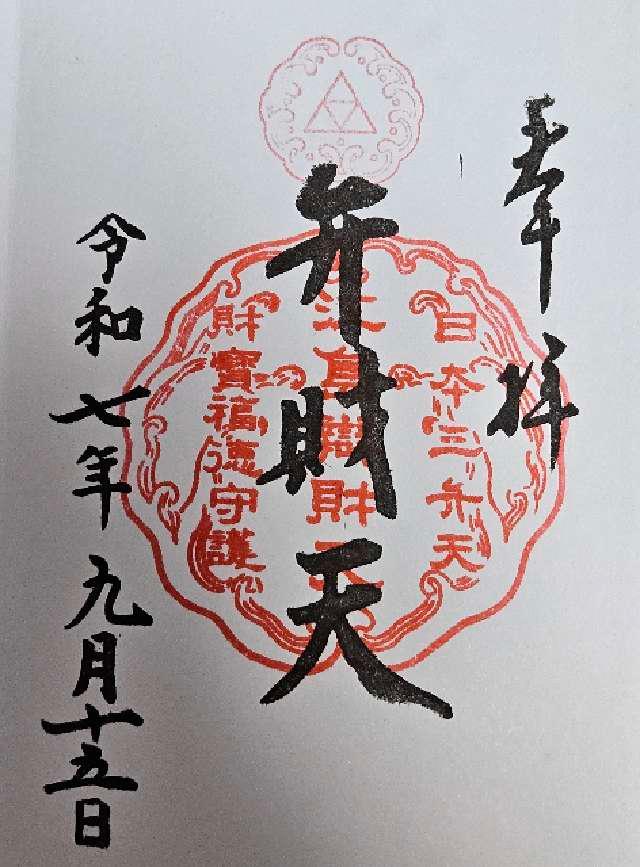 奉拝
日本三弁天
弁財天
江島辨財天
財寶福徳守護
令和七年九月十五日